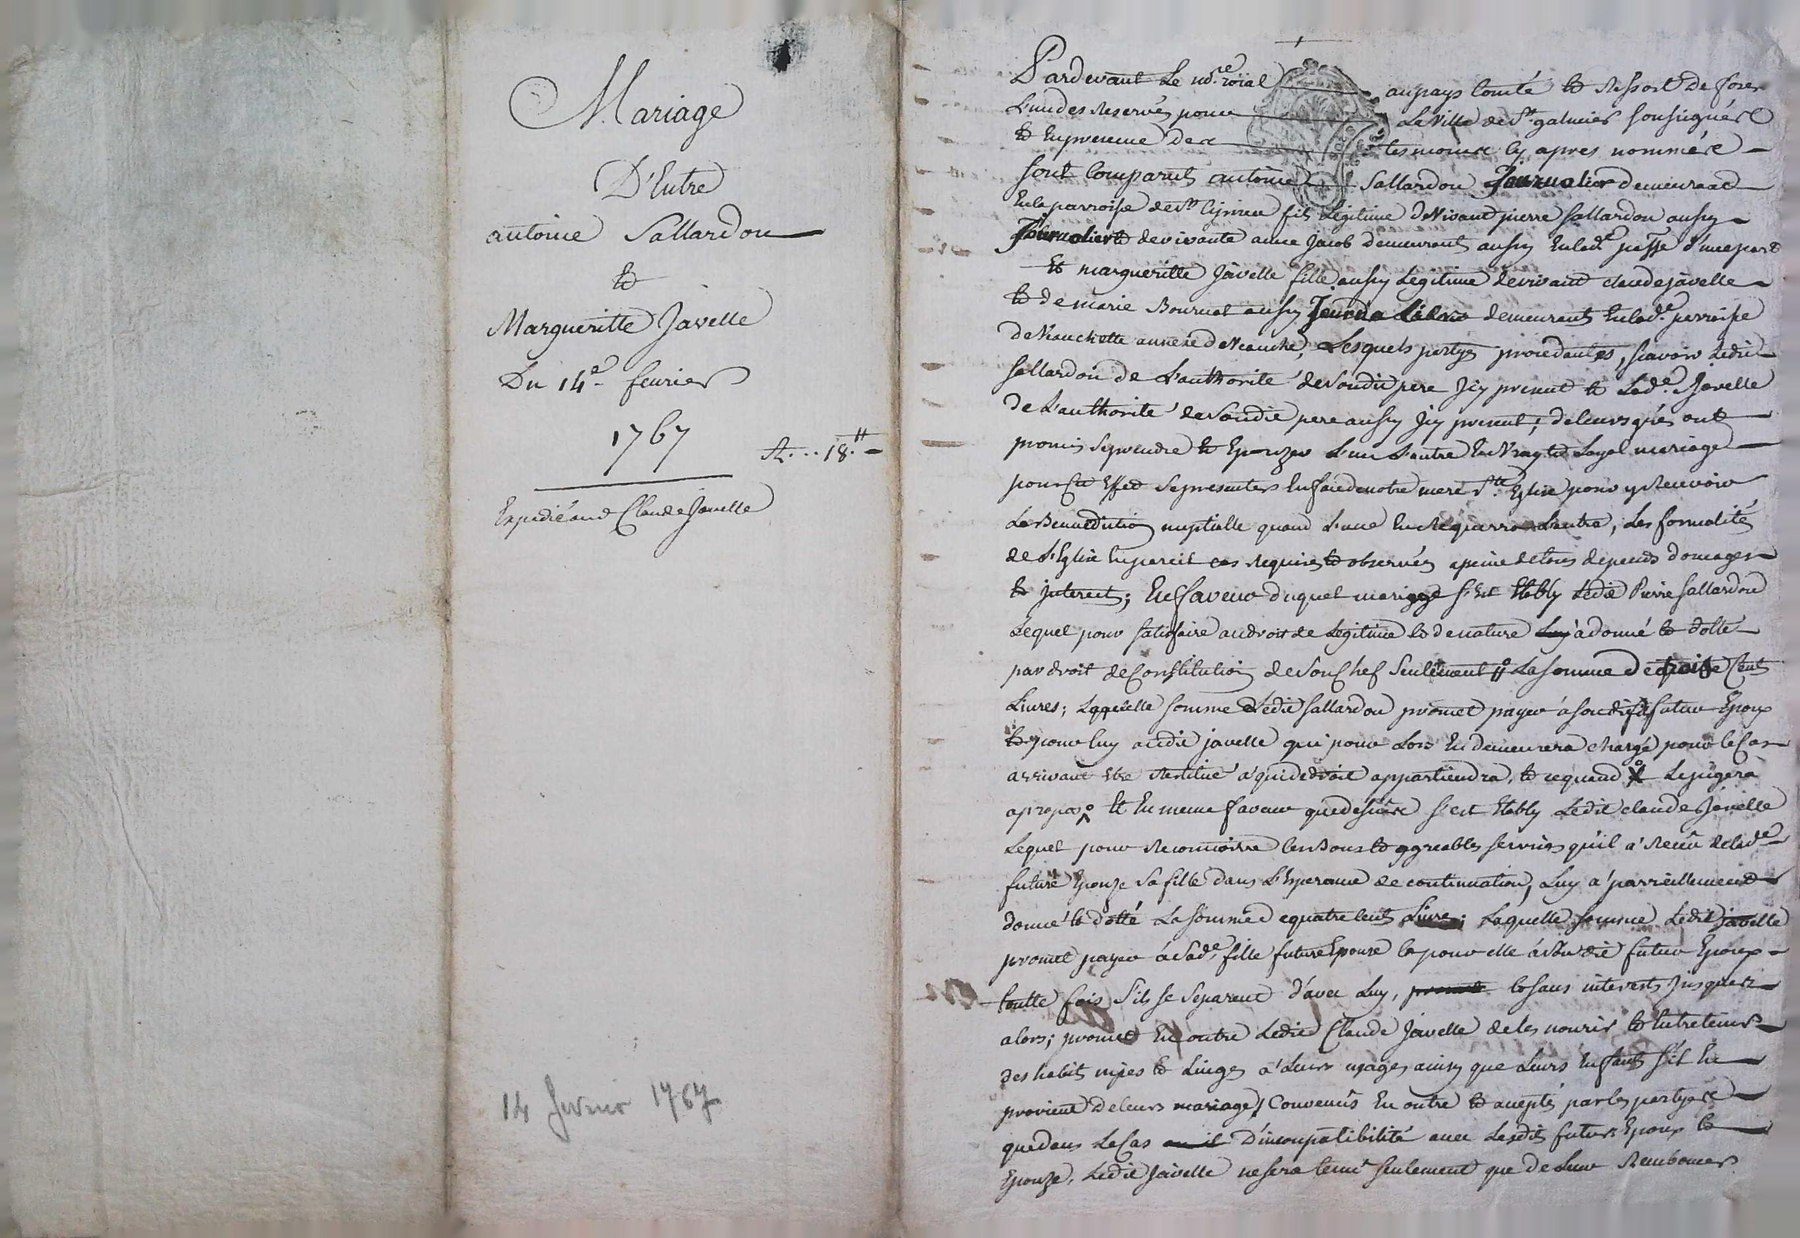 Mariage
D'Entre
antoine Sallardon
et
Margueritte Javelle
Du 14e. fevrier
1767
18.#
Expedié aud Claude Javelle
14 fevrier 1767
Pardevant Le nore. roial au pays Comté et Ressort de forex
L'un des Reservés pour La Ville de St. galmier soussigné
Et En presence des tesmoins Cy apres nommés
sont Comparus antoine Sallardon Journalier demeurant
En la parroisse de st Ciprien fils Legitime de Vivant pierre sallardon aussy
Journalier et de vivante anne Jacob demeurant aussy En lade. psse d'une part
Et margueritte Javelle fille aussy Legitime de vivant claude javelle
Et de marie Bournat aussy demeurants En lade. parroisse
de Veauchette annexe de Veauche, Lesquels partyes procedantes, scavoir Ledit
sallardon de L'authorité de Sondit pere Jcy present et Lade. Javelle
de L'authorité de Sondit pere aussy Jcy present; de leurs grés ont
promis Se prendre et Epouzer L'un L'autre En Vray et Loyal mariage
pour Cet Effet Se presenter En face de notre mere Ste. Eglise pour y Recevoir
La Benediction nuptialle quand L'une En Requerra L'autre, Les formalités
de L'Eglise En pareil cas Requises et observées a peine de tous depends domages
et jnterets; En faveur duquel mariage s'Est Etably Ledit Pierre sallardon
Lequel pour satisfaire au droit de Legitime et de nature Luy a donné et dotté
par droit de Constitution de Son Chef Seulement La Somme de Cent
Livres; Laquelle somme Ledit sallardon promet payer a sondit fils futur Epoux
et pour Luy audit javelle qui pour Lors En demeurera chargé pour le Cas
arrivant Etre Restitué a qui de droit appartiendra, et ce quand Le jugera
apropos Et En meme faveur que dessus s'est Etably Ledit claude Javelle
Lequel pour Reconnoitre les Bons et agreables services qu'il a Recu de lade.
future Epouze Sa fille dans L'Esperance de continuation, Luy a parreillement
donné et dotté La Somme de quatre Cent Livres; Laquelle somme Ledit javelle
promet payer a Sade. fille future Epouze et pour elle a Son dit futur Epoux
toutte fois S'ils se Separent d'avec Luy, et sans interets Jusques
alors; promet En outre Ledit Claude Javelle de les nourir et Entretenir
des habits nipes et Linges a Leurs usages ainsy que Leurs Enfants s'il En
provient de leurs mariage, Convenus En outre et accepté par les partyes
que dans Le Cas D'incompatibilité avec Lesdits futurs Epoux et
Epouze, Ledit Javelle ne Sera tenu seulement que de Leur Rembourser